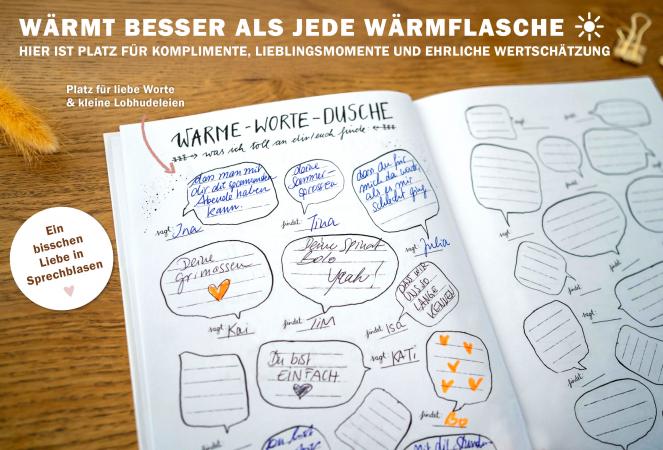 WÄRMT BESSER ALS JEDE WÄRMFLASCHE
HIER IST PLATZ FÜR KOMPLIMENTE, LIEBLINGSMOMENTE UND EHRLICHE WERTSCHÄTZUNG
Platz für liebe Worte
& kleine Lobhudeleien
WARME-WORTE-DUSCHE
was ich toll an dir/euch finde
dass man mit
dir die spannendsten
Abende haben
kann.
sagt Ina
deine
Sommer-
sprossen
findet Tina
dass du für
mich da warst,
als es mir
schlecht ging
sagt Julia
Ein
bisschen
Liebe in
Sprechblasen
Deine
Grimassen
sagt Kai
Deine Spinat
Bolo
Yeah!
findet TIM
DAS WIR
UNS SO
LANGE
KENNEN
findet Isa
Du bist
EINFACH
sagt KATI
findet Bo
Du bist
mit dir
sagt
findet
sagt
findet
findet
findet